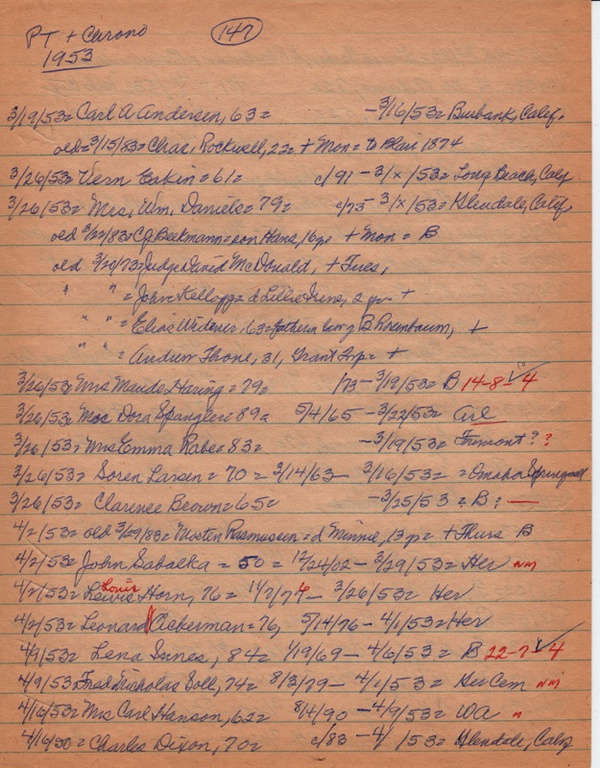 PT + Chrono
147
1953
3/19/53= Carl A Andersen, 63= – 3/16/53= Burbank, Calif,
old= 3/15/83= Chas, Rockwell, 22= + Mon= to Blair 1874
3/26/53= Vern Eakin= 61= c/91 – 3/x/53= Long Beach, Calif
3/26/53= Mrs, Wm, Daniels= 79= c/73 – 3/x/53= Glendale, Calif,
old 3/22/83= C J Beekmann= son Hans, 16 yr + Mon = B
old 3/29/73= Judge David McDonald, + Tues,
" " = John Kellogg= d Lillie Irens, 2 yr +
" " = Elias Widener, 63= father law B Rosenbaum, +
" " = Andrew Throne, 31, Grant Srp= +
3/26/53= Mrs Maude Hering= 79= /73 – 3/19/53= B 14-8-4
3/26/53= Mrs Dora Spangler= 89= 5/4/65 – 3/22/53= Arl
3/26/53= Mrs Emma Rabe= 83= – 3/19/53= Fremont? ?
3/26/53= Soren Larsen= 70= 3/14/63 – 3/16/53= =Omaha
3/26/53= Clarence Brown= 65= – 3/25/53= B? –
4/2/53= old 3/29/83= Morten Rasmussen= d Minnie, 13 yr= + Thurs B
4/2/53= John Sabatka= 50= 12/24/02 – 3/29/53= Her NM
4/2/53= Lewis Louis Horn, 76= 11/2/76 – 3/26/53= Her
4/2/53= Leonard Ackerman= 76, 5/14/76 – 4/1/53= Her
4/9/53= Lena Innes, 84= 1/19/69 – 4/6/53= B 22-7-4
4/9/53= Fred Nicholas Soll, 74= 8/3/79 – 4/1/53= Her Cem NM
4/16/53= Mrs Carl Hanson, 62= 8/4/90 – 4/9/53= WA M
4/16/50= Charles Dixon, 70= c/83 – 4/ /53= Glendale, Calif